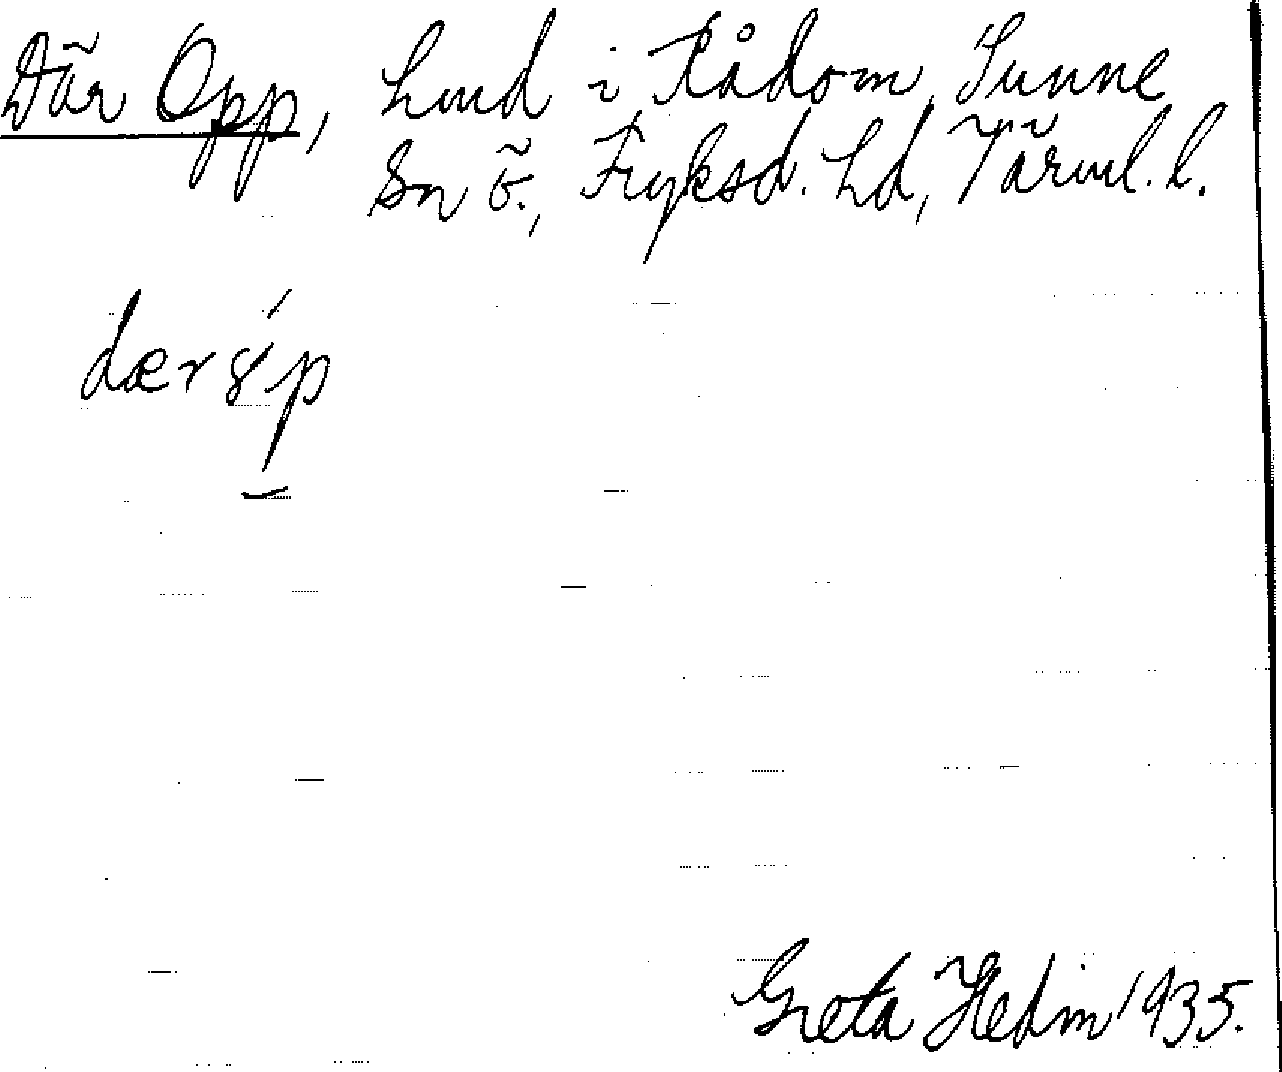 Där Opp, Lund i Rådom, Sunne
Sn ö., Fryksd. hd, Värml. l.
dær
Greta Hedin 1935.